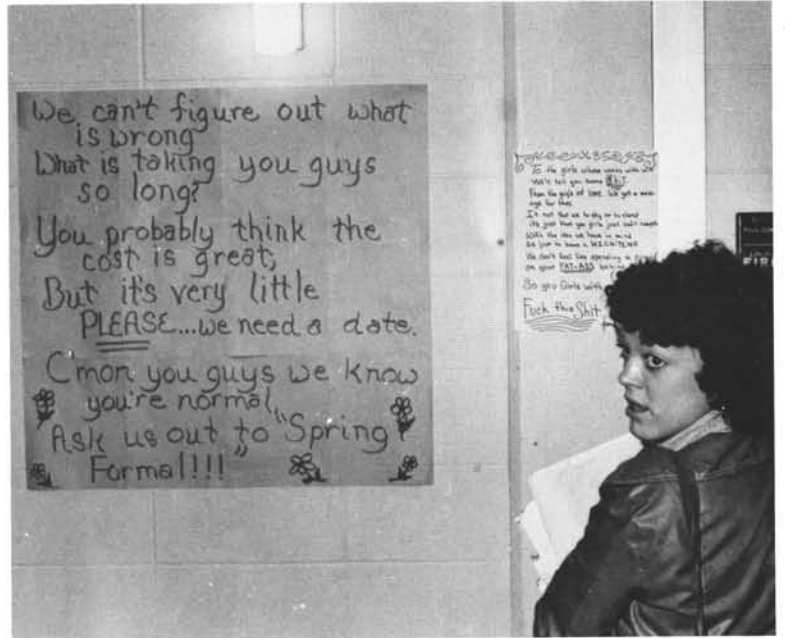 We can't figure out what
is wrong
What is taking you guys
so long?
You probably think the
cost is great,
But it's very little
PLEASE...we need a date.
C'mon you guys we know
you're normal,
Ask us out to "Spring
Formal!!!"
To the girls whose
tell you some
From the guys of
age for thee
It not that we to shy or to
it's just that you girls just
With the idea we have in mind
Or just to have a
We don't feel like spending a
on your FAT-ASS
So you Girls with
Fuck this Shit
FIR